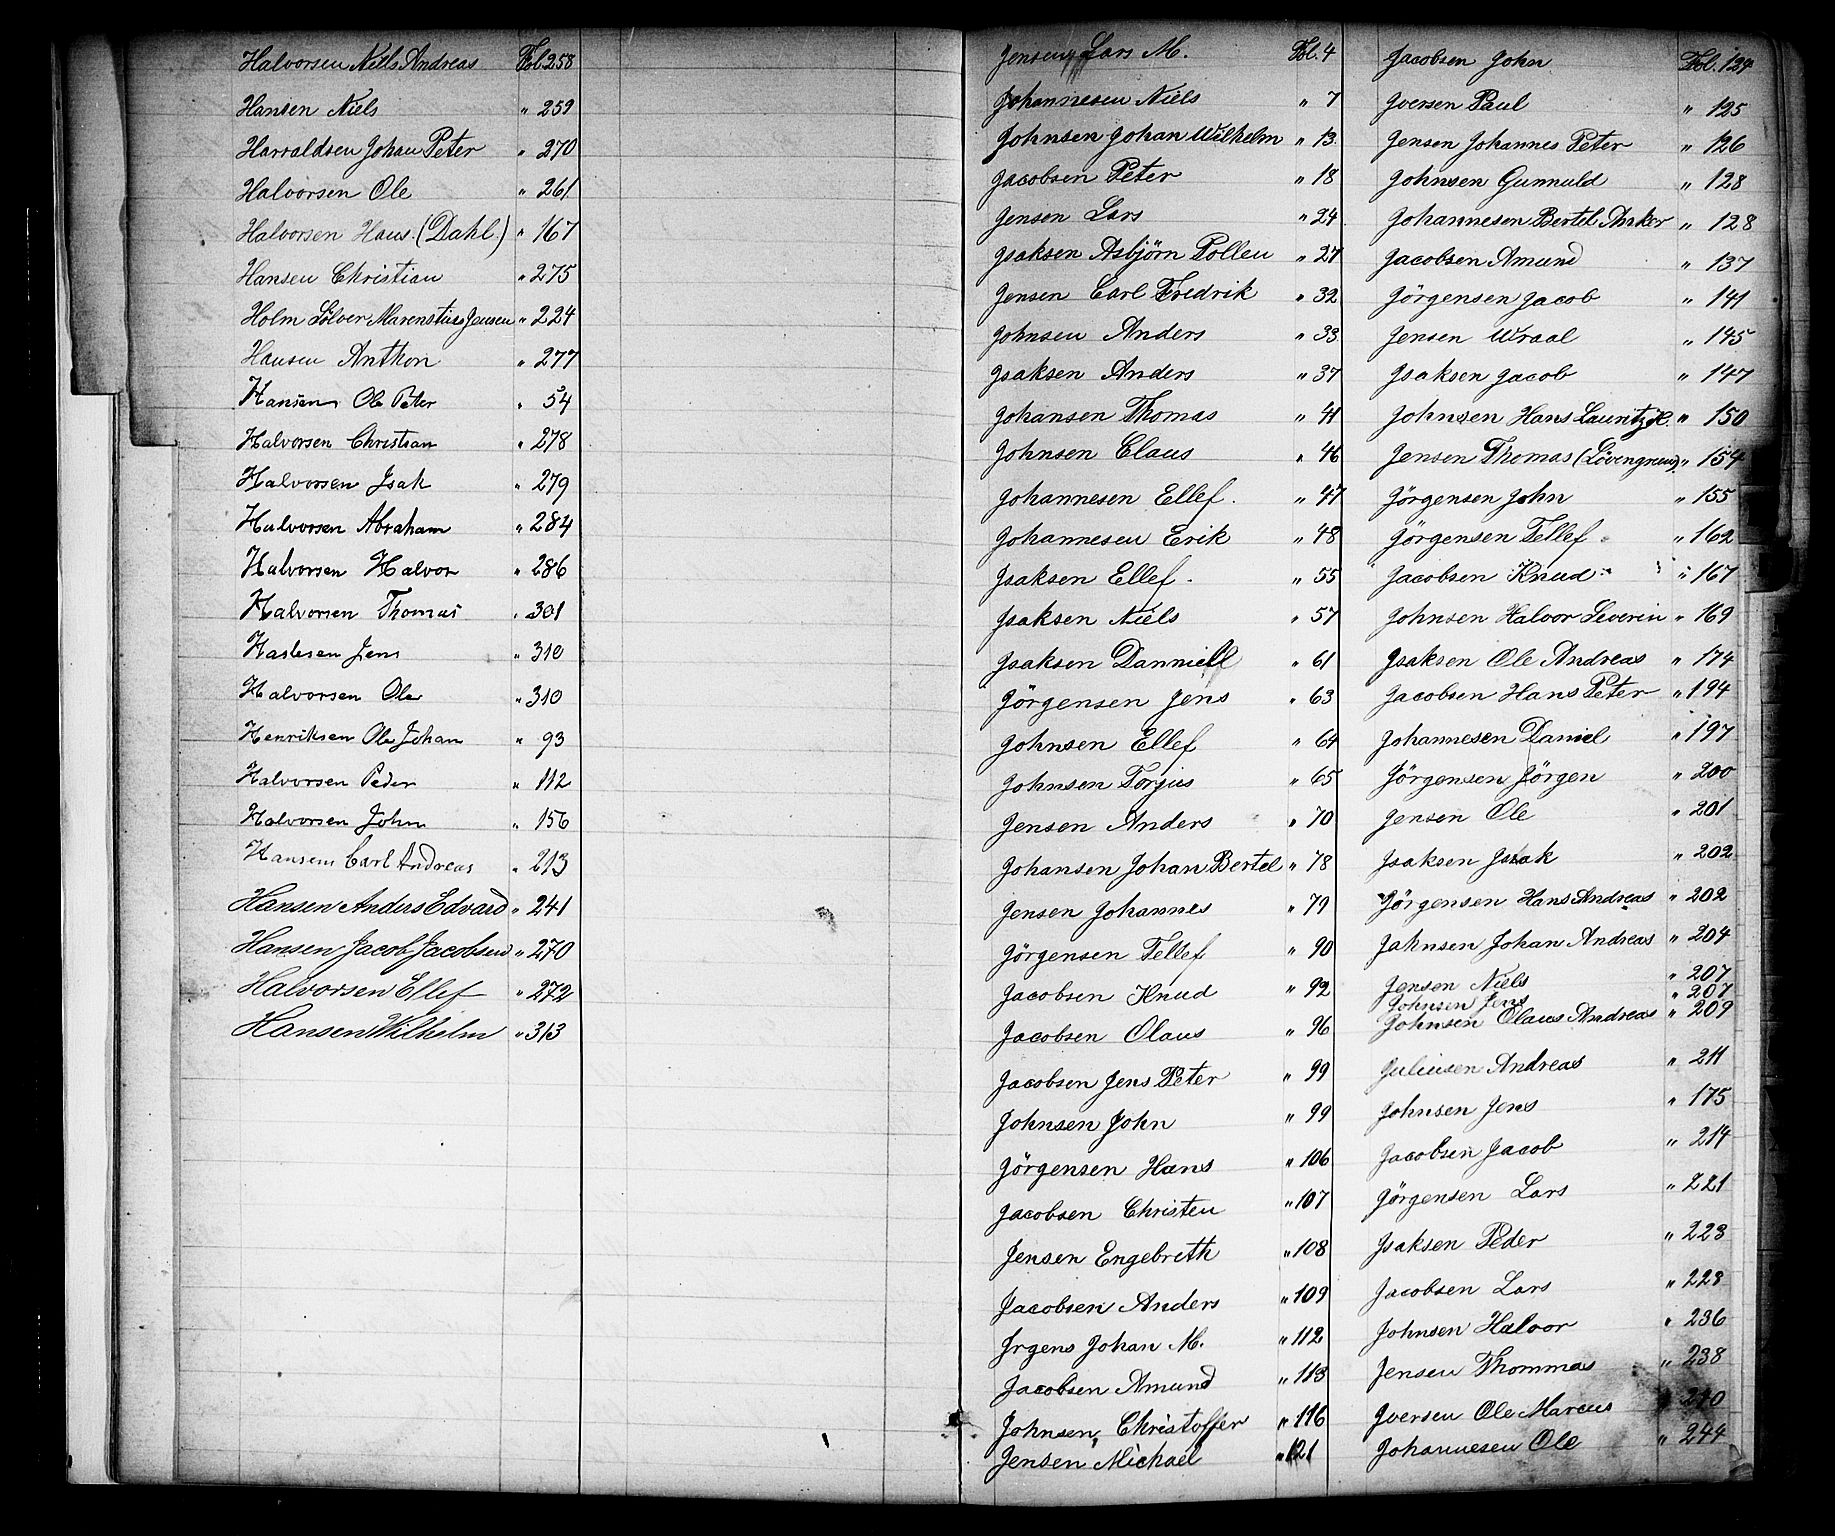 Halvorsen Niels Andreas Fol. 258
Hansen Niels " 259
Harraldsen Johan Peter " 270
Halvorsen Ole " 261
Halvorsen Hans (Dahl) " 167
Hansen Christian " 275
Holm Sølver Marenstius Jensen " 224
Hansen Anthon " 277
Hansen Ole Peter " 54
Halvorsen Christian " 278
Halvorsen Isak " 279
Halvorsen Abraham " 284
Halvorsen Halvor " 286
Halvorsen Thomas " 301
Jens " 310
Halvorsen Ole " 310
Henriksen Ole Johan " 93
Halvorsen Peder " 112
Halvorsen John " 156
Hansen Carl Andreas " 213
Hansen Anders Edvard " 241
Hansen Jacob Jacobsen " 270
Halvorsen Ellef " 272
Hansen Wilhelm " 313
Jensen, Lars M. Fol. 4
Johannesen Niels " 7
Johnsen Johan Wilhelm " 13
Jacobsen Peter " 18
Jensen Lars " 24
Isaksen Asbjörn Pollen " 27
Jensen Carl Fredrik " 32
Johnsen Anders " 33
Isaksen Anders " 37
Johansen Thomas " 41
Johnsen Claus " 46
Johannesen Ellef. " 47
Johannesen Erik " 48
Isaksen Ellef. " 55
Isaksen Niels " 57
Isaksen Danniell " 61
Jörgensen Jens " 63
Johnsen Ellef " 64
Johnsen Torjus " 65
Jensen Anders " 70
Johansen Johan Bertel " 78
Jensen Johannes " 79
Jörgensen Tellef " 90
Jacobsen Knud " 92
Jacobsen Olaus " 96
Jacobsen Jens Peter " 99
Johnsen John " 99
Jörgensen Hans " 106
Jacobsen Christen " 107
Jensen Engebreth " 108
Jacobsen Anders " 109
Jrgens Johan M. " 112
Jacobsen Amund " 113
Johnsen, Christoffer " 116
Jensen Michael " 121
Jacobsen John Fol. 124
Iversen Paul " 125
Jensen Johannes Peter " 126
Johnsen Gunnuld " 128
Johannesen Bertel Anker " 128
Jacobsen Amund " 137
Jörgensen Jacob " 141
Jensen Wraal " 145
Isaksen Jacob " 147
Johnsen Hans Lauritz K. " 150
Jensen Thomas (Lövengreen) " 154
Jörgensen John " 155
Jörgensen Tellef " 162
Jacobsen Knud " 167
Johnsen Halvor Severin " 169
Isaksen Ole Andreas " 174
Jacobsen Hans Peter " 194
Johannesen Daniel " 197
Jörgensen Jörgen " 200
Jensen Ole " 201
Isaksen Isak " 202
Jörgensen Hans Andreas " 202
Johnsen Johan Andreas " 204
Jensen Niels " 207
Johnsen Jens " 207
Johnsen Olaus Andreas " 209
Juliusen Andreas " 211
Johnsen Jens " 175
Jacobsen Jacob " 214
Jörgensen Lars " 221
Isaksen Peder " 223
Jacobsen Lars " 228
Johnsen Halvor " 236
Jensen Thommas " 238
Iversen Ole Marcus " 240
Johannesen Ole " 244